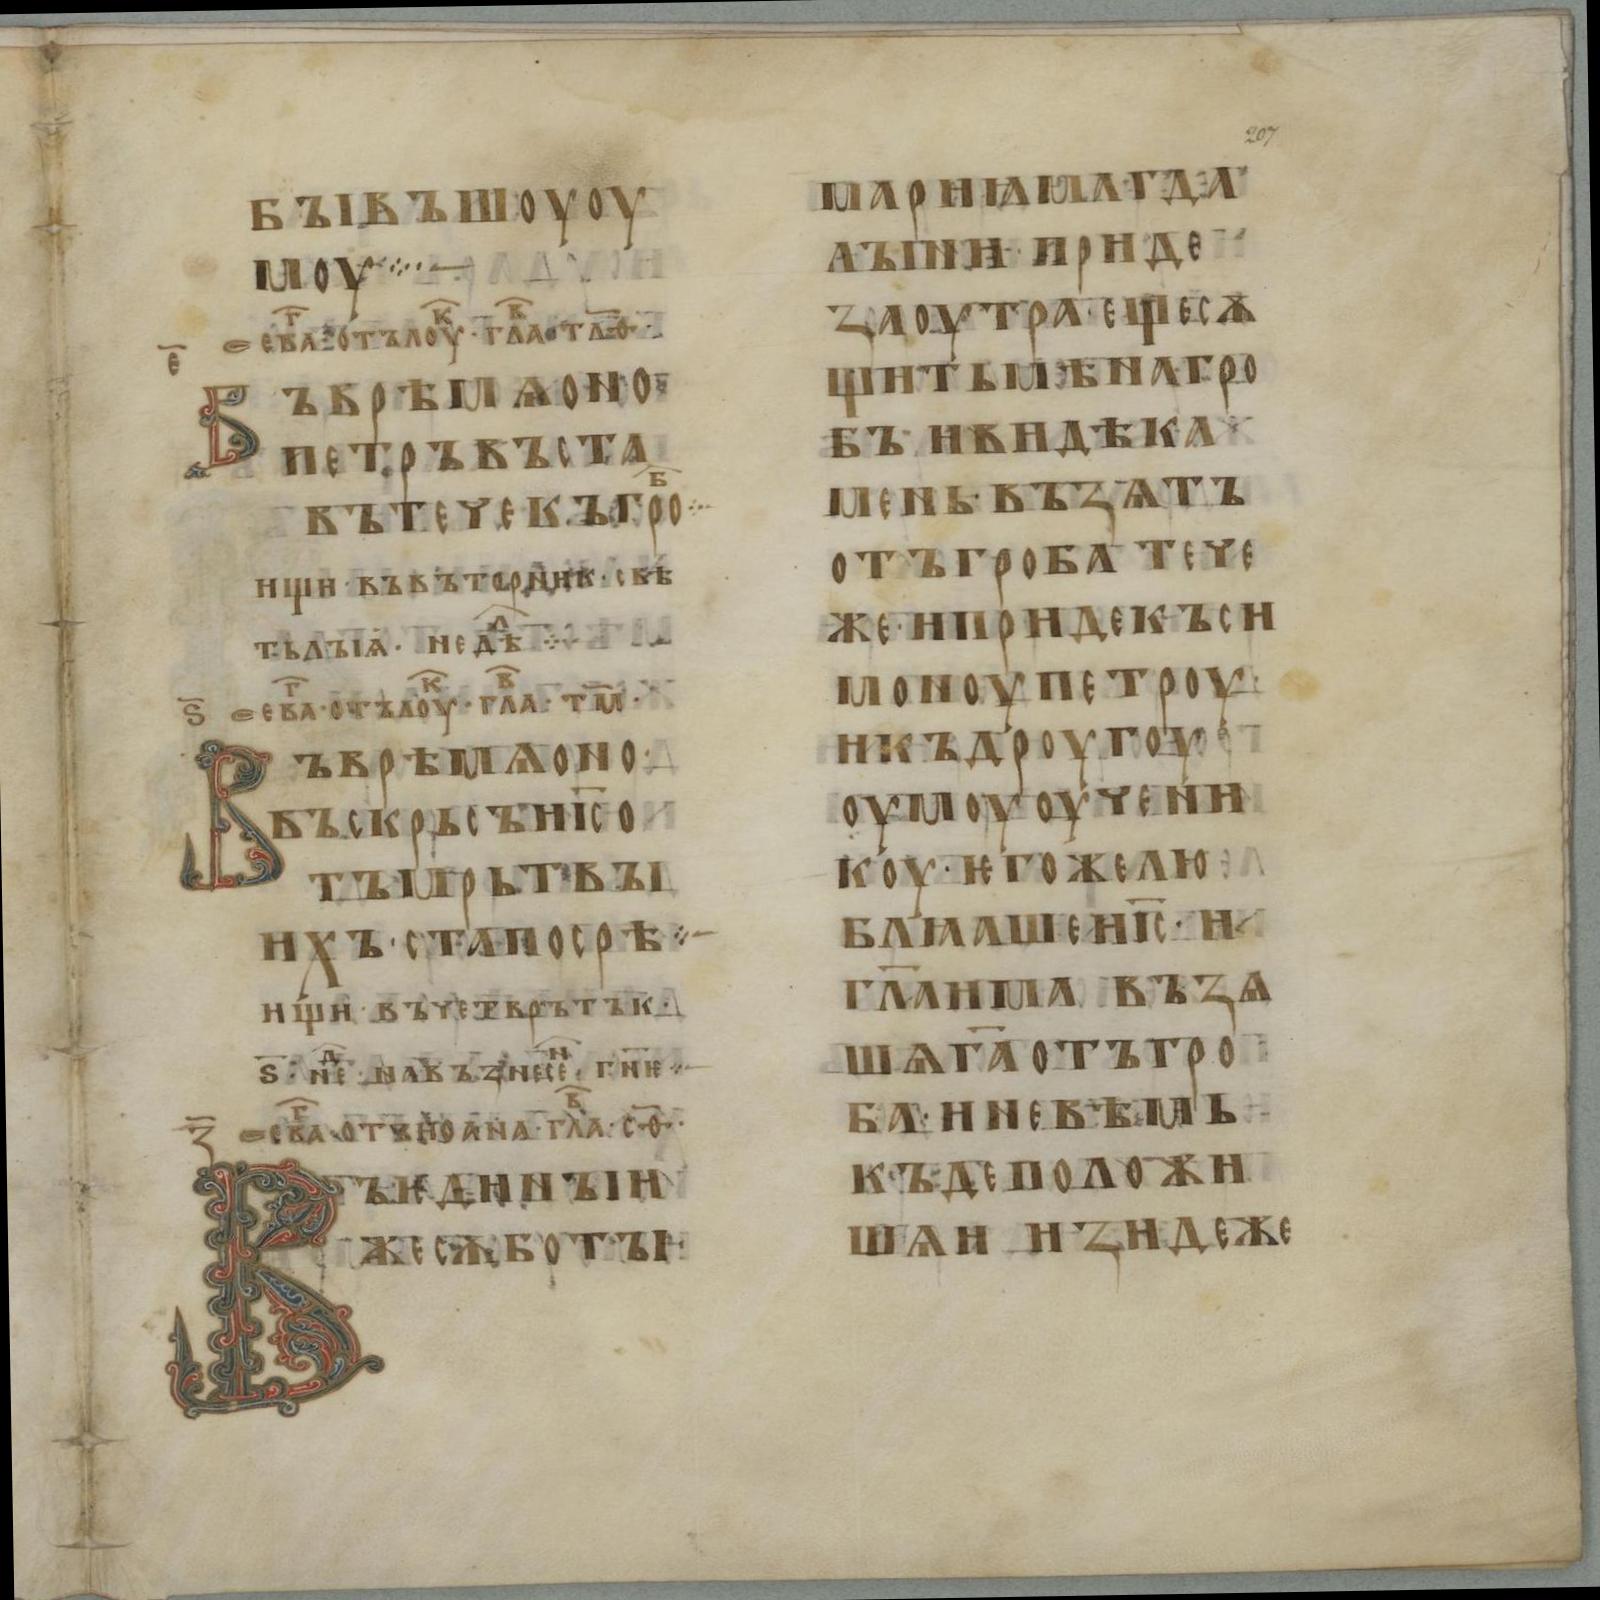 207
БЪІВЪШОУОУ
МОУ
е҃ еваⷢ отълоуⷦ· глаⷡ· т҃л҃ѳ·
ВЪВРѢМѦОНО·
ПЕТРЪВЪСТА
ВЪТЕЧЕКЪГРОⷠ
нщи· въвъторьник· свѣ
тьлыіѧ· недѣⷧ
ѕ҃ еваⷢ· отълоуⷦ· глаⷡ· т҃м҃·
ВЪВРѢМѦОНО·
ВЪСКРЬСЪНІ҃СО
ТЪМРЬТВЪІ
ИХЪ·СТАПОСРѢ
ищи· въчетврьтък·
ѕ҃· неⷣ· навъзнесеⷩ· гн҃ѥ
з҃ еваⷢ· отъиоана· глаⷡ· с҃ѳ҃·
ВЪѤДИНЪІИ
ЖЕСѪБОТЪІ
МАРИꙖМАГДА
ЛЪІНИ· ПРИДЕ
ЗАОУТРА·ЕЩЕСѪ
ЩИТЬМѢНАГРО
БЪ·ИВИДѢКА
МЕНЬ·ВЪЗѦТЪ
ОТЪГРОБА ТЕЧЕ
ЖЕ·ИПРИДЕКЪСИ
МОНОУПЕТРОУ·
ИКЪДРОУГОУ
ОУМОУОУЧЕНИ
КОУ·ѤГОЖЕЛЮ
БЛꙖАШЕИІ҃С·И
ГЛ҃АИМА ВЪЗѦ
ШѦГ҃АОТЪГРО
БА·ИНЕВѢМЬ
КЪДЕПОЛОЖИ
ШѦИ ИЗИДЕЖЕ